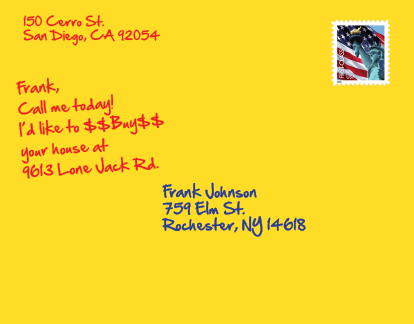 150 Cerro St.
San Diego, CA 92054
Frank,
Call me today!
I'd like to $$Buy$$
your house at
9613 Lone Jack Rd.
Frank Johnson
759 Elm St.
Rochester, NY 14618